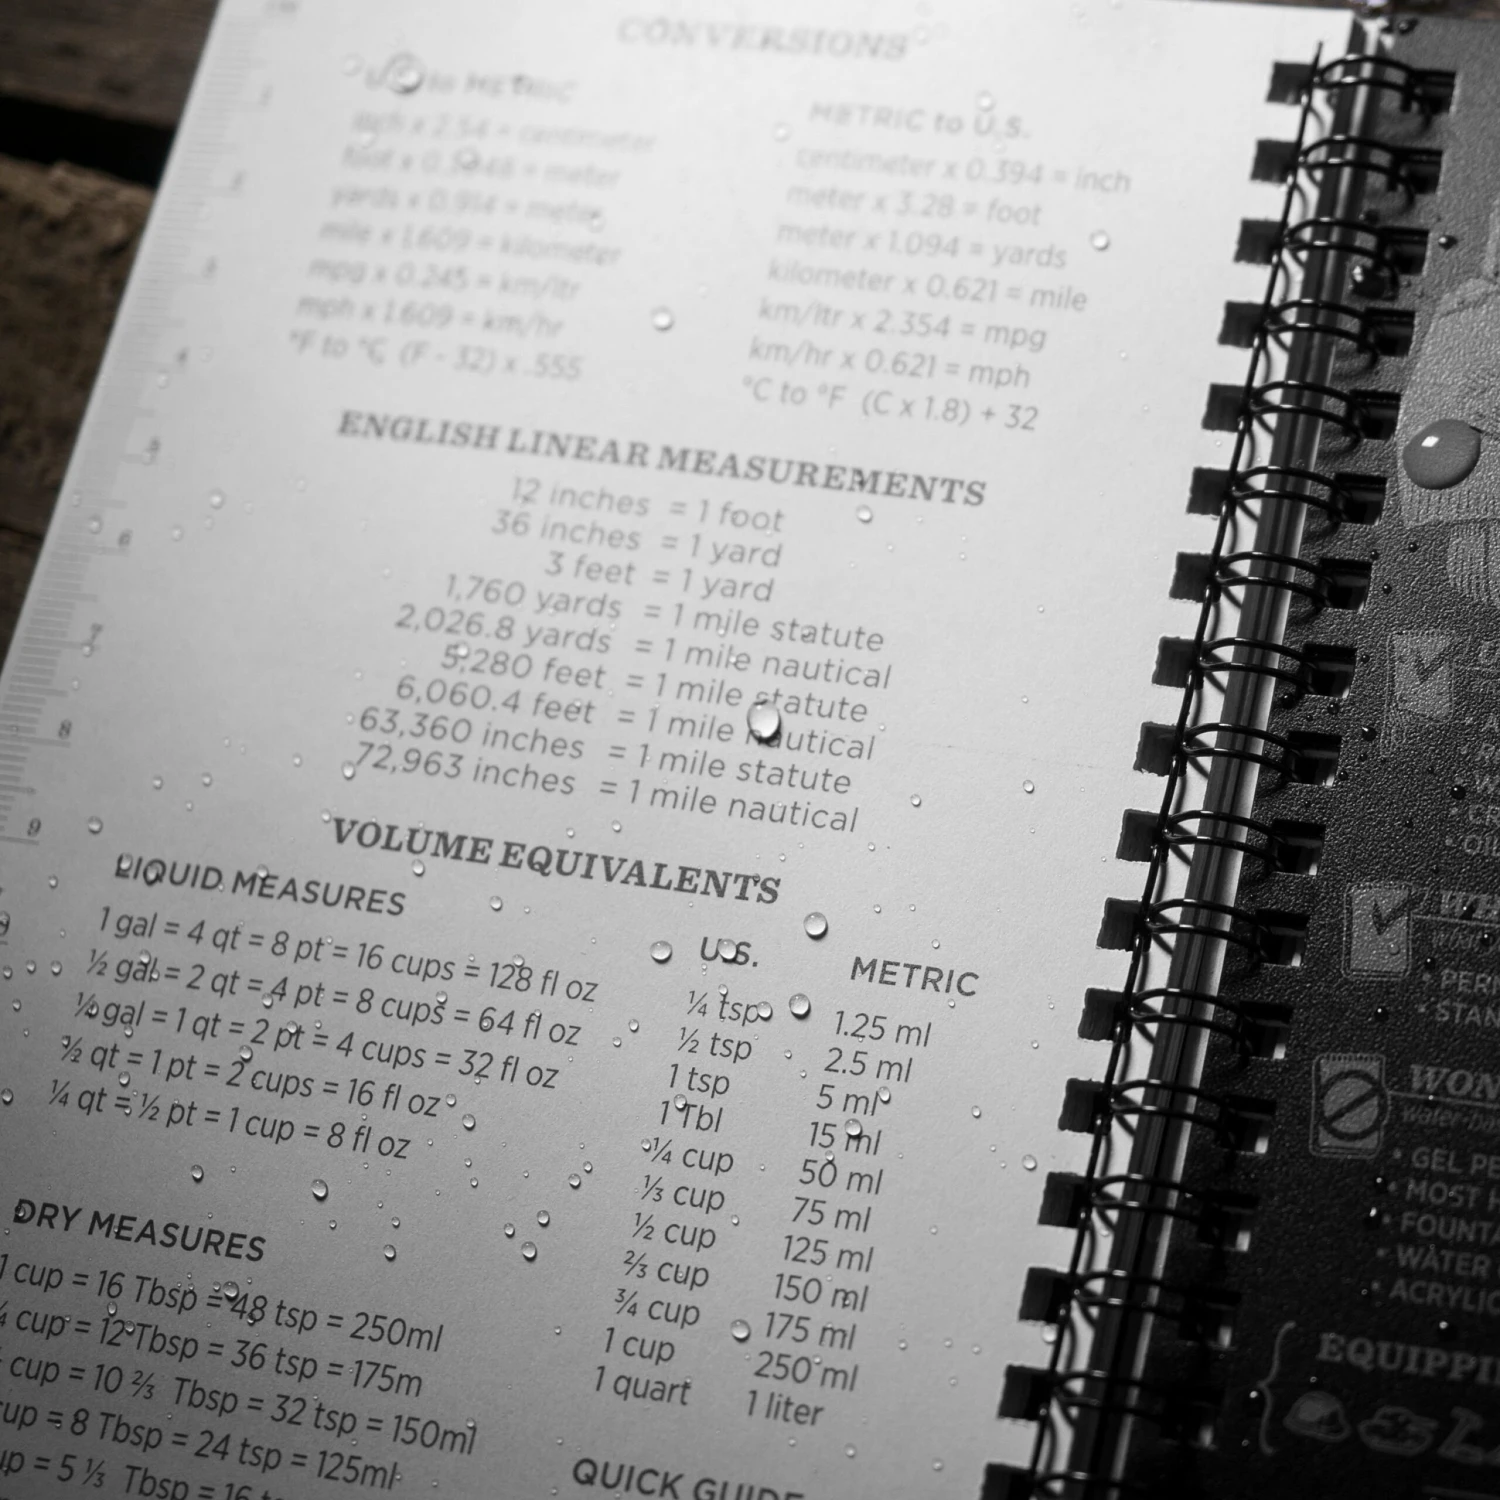 CONVERSIONS
U.S. to METRIC
inch x 2.54 = centimeter
foot x 0.3048 = meter
yards x 0.914 = meter
mile x 1.609 = kilometer
mpg x 0.245 = km/ltr
mph x 1.609 = km/hr
°F to °C (F - 32) x .555
METRIC to U.S.
centimeter x 0.394 = inch
meter x 3.28 = foot
meter x 1.094 = yards
kilometer x 0.621 = mile
km/ltr x 2.354 = mpg
km/hr x 0.621 = mph
°C to °F (C x 1.8) + 32
ENGLISH LINEAR MEASUREMENTS
12 inches = 1 foot
36 inches = 1 yard
3 feet = 1 yard
1,760 yards = 1 mile statute
2,026.8 yards = 1 mile nautical
5,280 feet = 1 mile statute
6,060.4 feet = 1 mile nautical
63,360 inches = 1 mile statute
72,963 inches = 1 mile nautical
VOLUME EQUIVALENTS
LIQUID MEASURES
1 gal = 4 qt = 8 pt = 16 cups = 128 fl oz
½ gal = 2 qt = 4 pt = 8 cups = 64 fl oz
¼ gal = 1 qt = 2 pt = 4 cups = 32 fl oz
½ qt = 1 pt = 2 cups = 16 fl oz
¼ qt = ½ pt = 1 cup = 8 fl oz
DRY MEASURES
1 cup = 16 Tbsp = 48 tsp = 250ml
cup = 12 Tbsp = 36 tsp = 175m
cup = 10 ⅔ Tbsp = 32 tsp = 150ml
cup = 8 Tbsp = 24 tsp = 125ml
= 5 ⅓ Tbsp = 16
U.S. METRIC
¼ tsp 1.25 ml
½ tsp 2.5 ml
1 tsp 5 ml
1 Tbl 15 ml
¼ cup 50 ml
⅓ cup 75 ml
½ cup 125 ml
⅔ cup 150 ml
¾ cup 175 ml
1 cup 250 ml
1 quart 1 liter
QUICK GUIDE
1
2
3
4
5
6
7
8
9